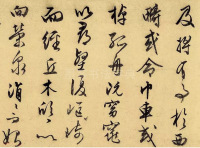 及將有事於西
疇或命巾車或
棹孤舟既窈窕
以尋壑復崎嶇
而經丘木欣欣以
向榮泉涓涓而始